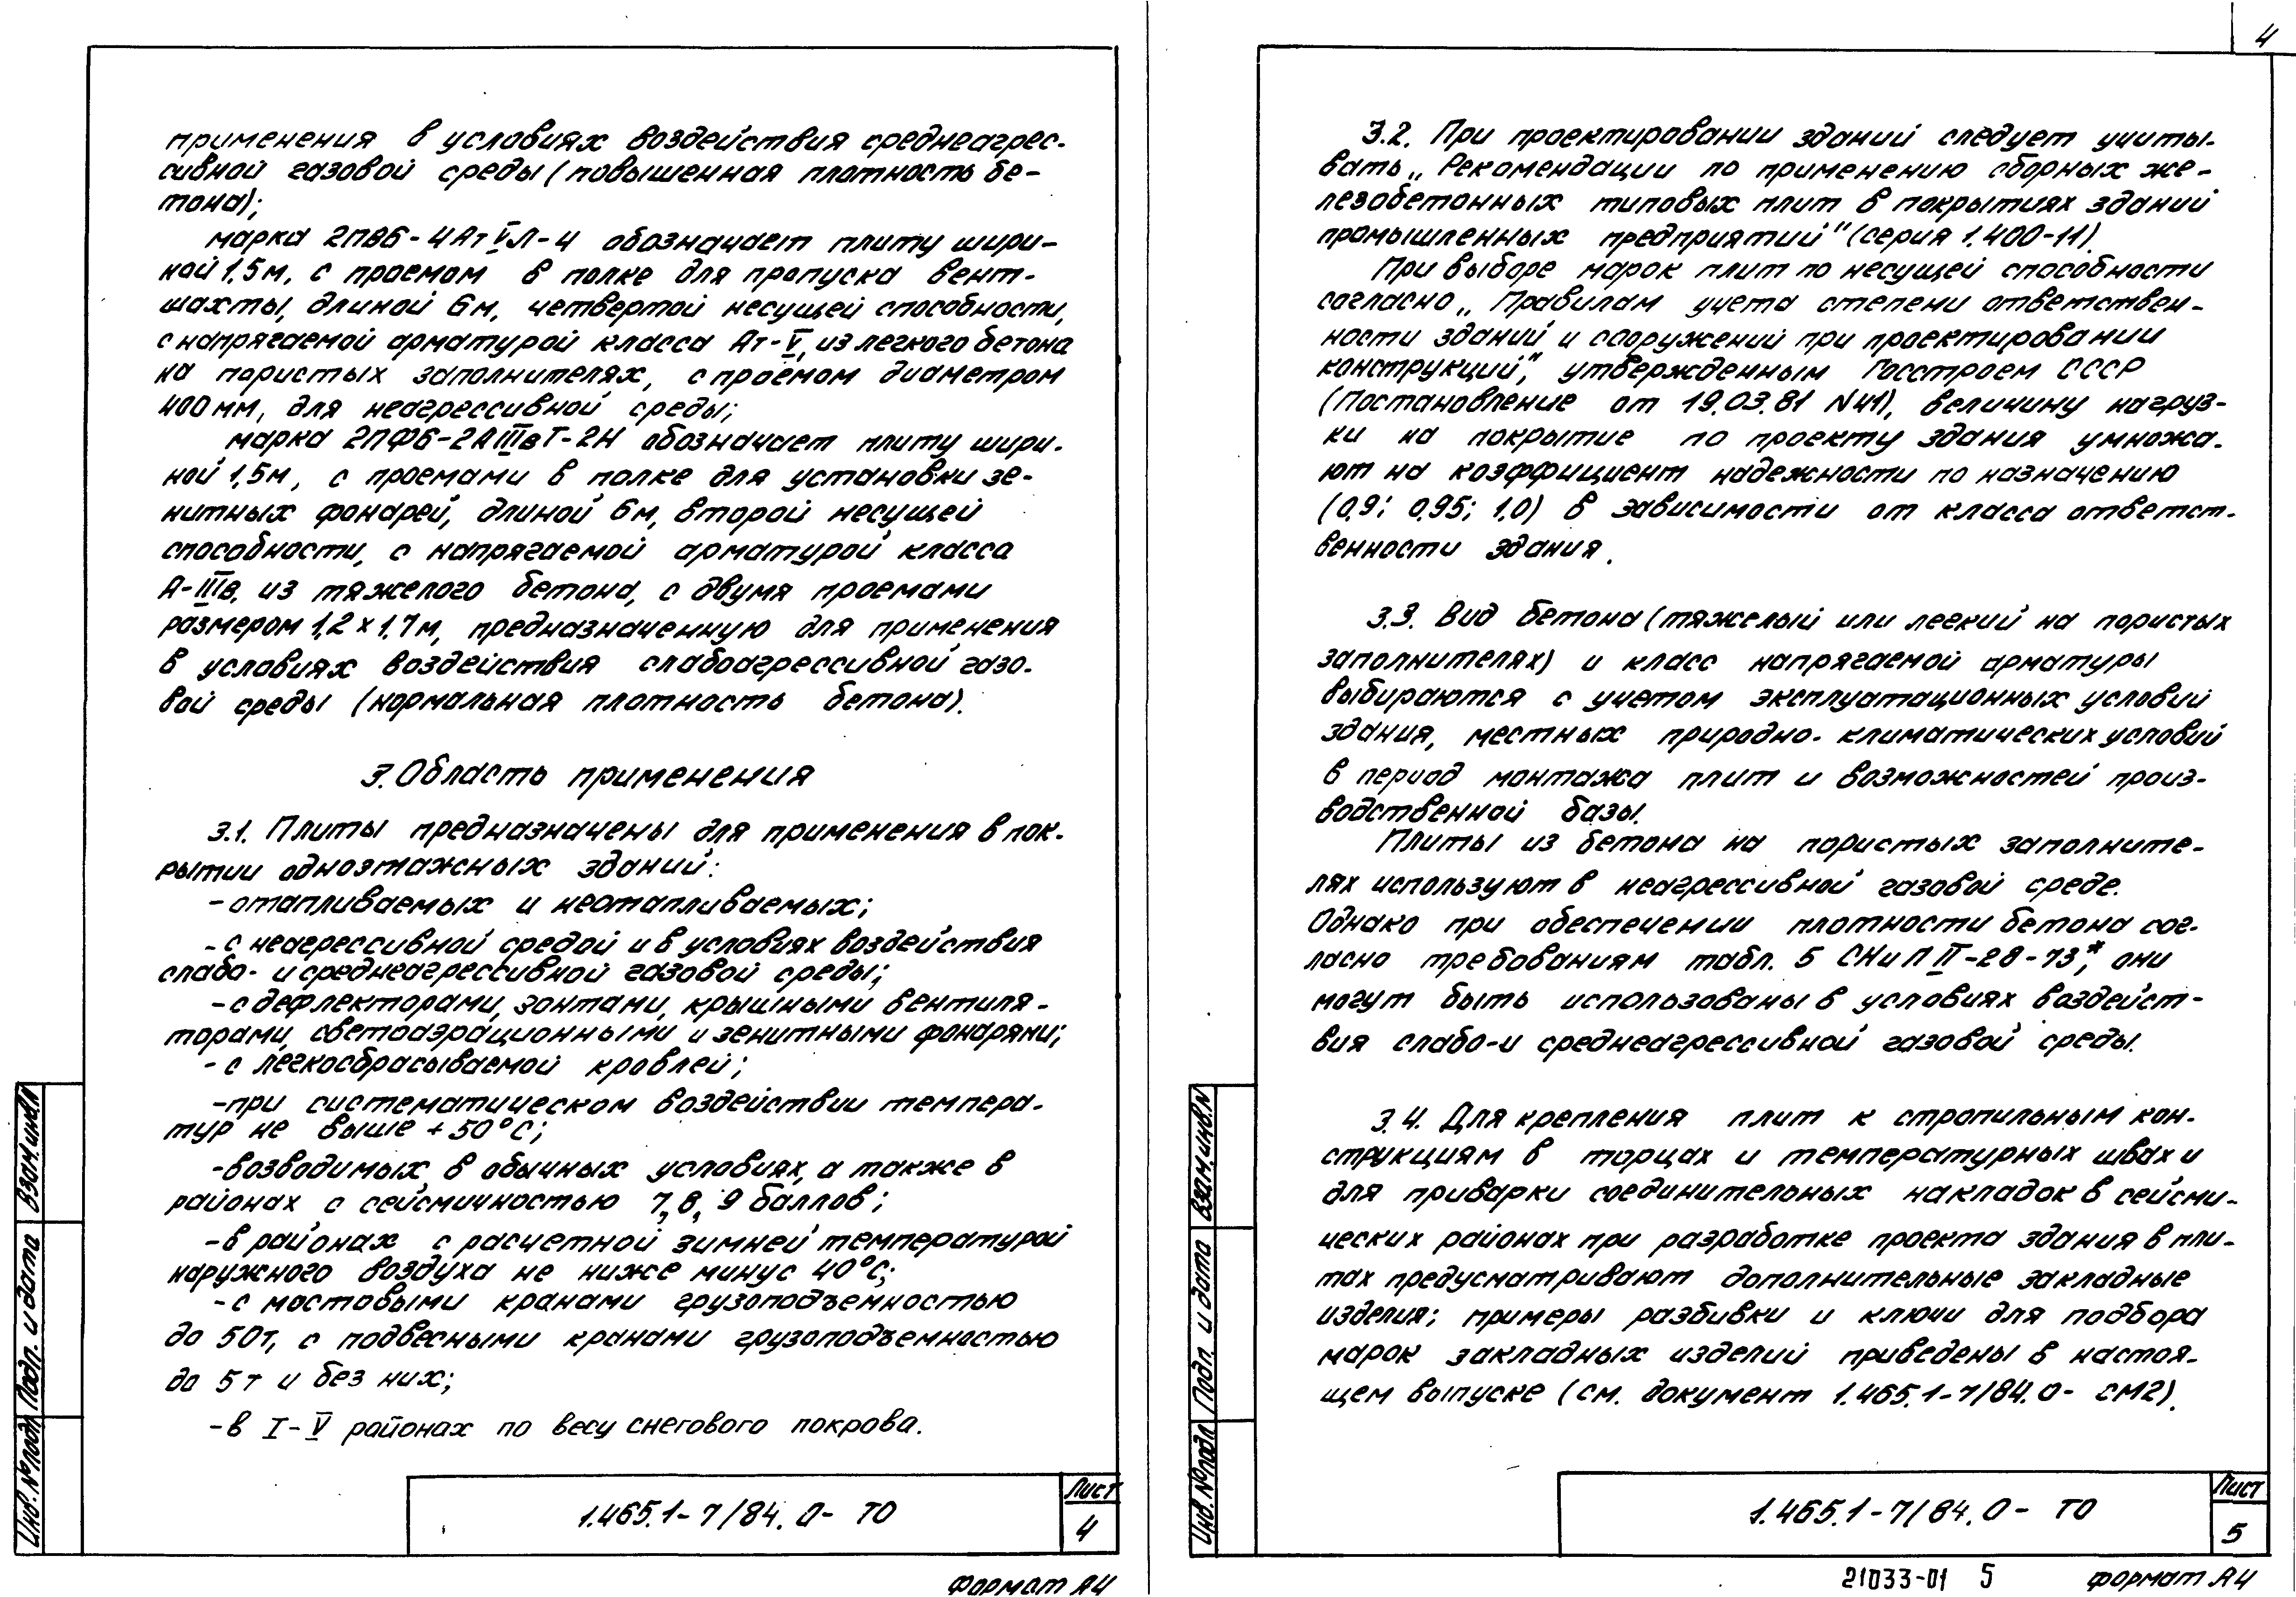 применения в условиях воздействия среднеагрес-
сивной газовой среды (повышенная плотность бе-
тона);
марка 2ПВ6-4АтVЛ-4 обозначает плиту шири-
ной 1,5м, с проемом в полке для пропуска вент-
шахты, длиной 6м, четвертой несущей способности,
с напрягаемой арматурой класса Ат-V, из легкого бетона
на пористых заполнителях, с проемом диаметром
400мм, для неагрессивной среды;
марка 2ПФ6-2АIIIвТ-2Н обозначает плиту шири-
ной 1,5м, с проемами в полке для установки зе-
нитных фонарей, длиной 6м, второй несущей
способности, с напрягаемой арматурой класса
А-IIIв, из тяжелого бетона, с двумя проемами
размером 1,2×1,7м, предназначенную для применения
в условиях воздействия слабоагрессивной газо-
вой среды (нормальная плотность бетона).
3. Область применения
3.1. Плиты предназначены для применения в пок-
рытии одноэтажных зданий:
-отапливаемых и неотапливаемых;
-с неагрессивной средой и в условиях воздействия
слабо- и среднеагрессивной газовой среды;
-с дефлекторами, зонтами, крышными вентиля-
торами, светоаэрационными и зенитными фонарями;
-с легкосбрасываемой кровлей;
-при систематическом воздействии темпера-
тур не выше +50°С;
-возводимых в обычных условиях, а также в
районах с сейсмичностью 7, 8, 9 баллов;
-в районах с расчетной зимней температурой
наружного воздуха не ниже минус 40°С;
-с мостовыми кранами грузоподъемностью
до 50т, с подвесными кранами грузоподъемностью
до 5т и без них;
-в I-V районах по весу снегового покрова.
Взам.инв.N
Подп. и дата
Инв. №подл
1.465.1-7/84.0- ТО
Лист
4
Формат А4
4
3.2. При проектировании зданий следует учиты-
вать „Рекомендации по применению сборных же-
лезобетонных типовых плит в покрытиях зданий
промышленных предприятий" (серия 1.400-11).
При выборе марок плит по несущей способности
согласно „Правилам учета степени ответствен-
ности зданий и сооружений при проектировании
конструкций", утвержденным Госстроем СССР
(Постановление от 19.03.81 N41), величину нагруз-
ки на покрытие по проекту здания умножа-
ют на коэффициент надежности по назначению
(0,9; 0,95; 1,0) в зависимости от класса ответст-
венности здания.
3.3. Вид бетона (тяжелый или легкий на пористых
заполнителях) и класс напрягаемой арматуры
выбираются с учетом эксплуатационных условий
здания, местных природно-климатических условий
в период монтажа плит и возможностей произ-
водственной базы.
Плиты из бетона на пористых заполните-
лях используют в неагрессивной газовой среде.
Однако при обеспечении плотности бетона сог-
ласно требованиям табл. 5 СНиП II-28-73*, они
могут быть использованы в условиях воздейст-
вия слабо-и среднеагрессивной газовой среды.
3.4. Для крепления плит к стропильным кон-
струкциям в торцах и температурных швах и
для приварки соединительных накладок в сейсми-
ческих районах при разработке проекта здания в пли-
тах предусматривают дополнительные закладные
изделия; примеры разбивки и ключи для подбора
марок закладных изделий приведены в настоя-
щем выпуске (см. документ 1.465.1-7/84.0- СМ2).
Взам.инв.N
Подп. и дата
Инв. №подл
1.465.1-7/84.0- ТО
Лист
5
21033-01 5
Формат А4